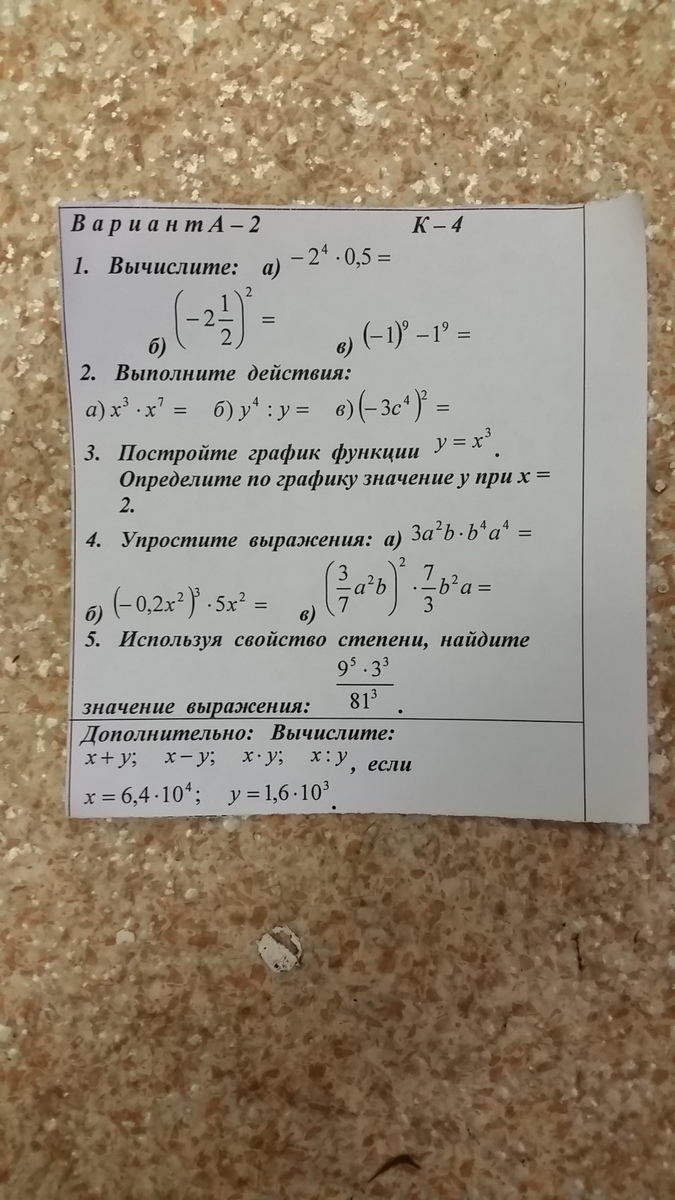 Вариант А – 2 К – 4
1. Вычислите: а) −2⁴ · 0,5 =
б) (−2 1/2)² = в) (−1)⁹ − 1⁹ =
2. Выполните действия:
а) x³ · x⁷ = б) y⁴ : y = в) (−3c⁴)² =
3. Постройте график функции y = x³.
Определите по графику значение у при х =
2.
4. Упростите выражения: а) 3a²b · b⁴a⁴ =
б) (−0,2x²)³ · 5x² = в) (3/7 a²b)² · 7/3 b²a =
5. Используя свойство степени, найдите
значение выражения: (9⁵ · 3³)/81³ .
Дополнительно: Вычислите:
x + y; x − y; x · y; x : y, если
x = 6,4 · 10⁴; y = 1,6 · 10³.